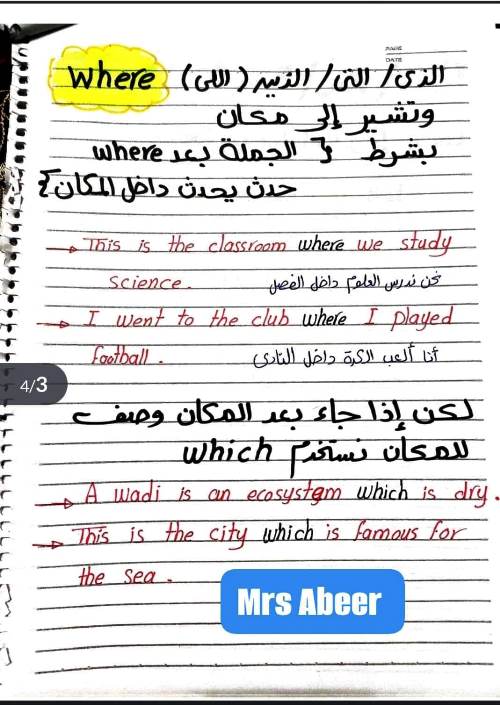 PAGE
DATE
where الذى/ التى/ الذين (اللى)
وتشير إلى مكان
بشرط { الجملة بعد where
حدث يحدث داخل المكان }
This is the classroom where we study
science. نحن ندرس العلوم داخل الفصل
I went to the club where I played
football. أنا ألعب الكرة داخل النادى
4/3
لكن إذا جاء بعد المكان وصف
للمكان نستخدم which
A wadi is an ecosystem which is dry.
This is the city which is famous for
the sea.
Mrs Abeer